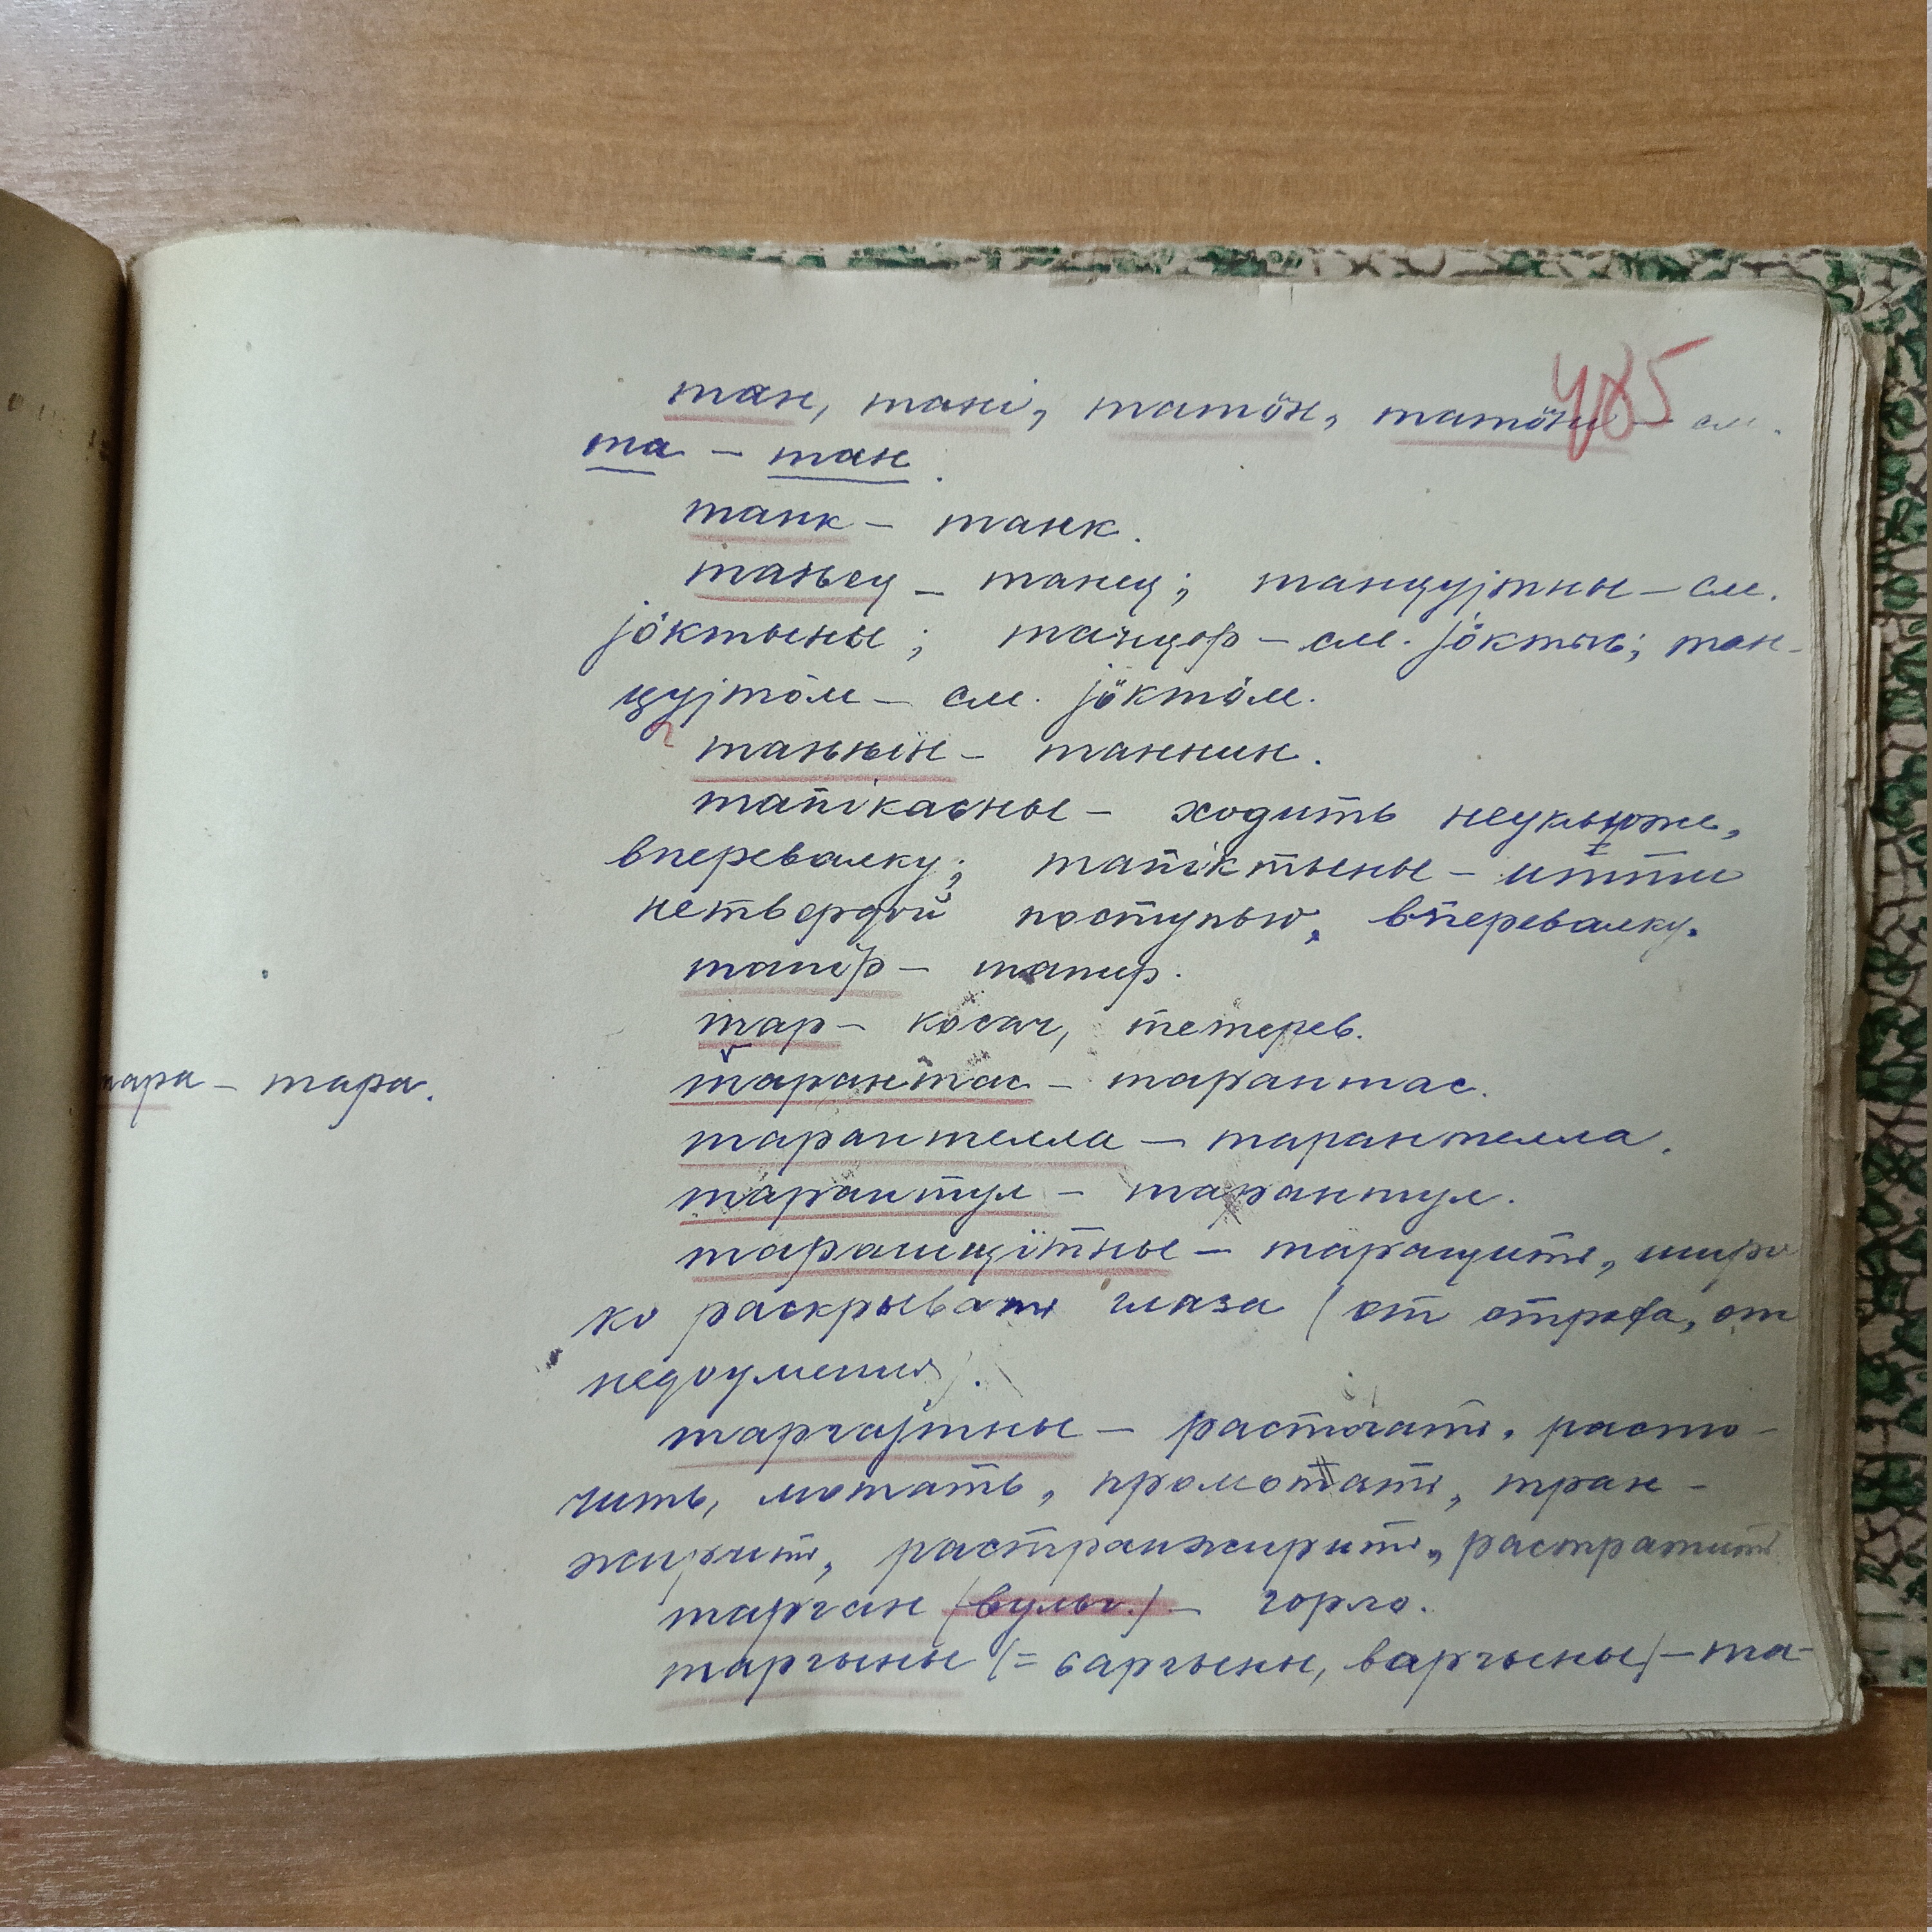 485
тан, тані, татöн, татöні – см.
та – тан.
танк – танк.
таԋец – танец; танцујтны – см.
јöктыны; танцор – см. јöктыԍ; тан-
цујтöм – см. јöктöм.
таԋԋін – таннин.
тапікасны – ходить неуклюже,
вперевалку; тапіктыны – итти
нетвердой поступью, вперевалку.
тапір – тапир.
тар – косач, тетерев.
тара – тара.
тарантас – тарантас.
тарантелла – тарантелла.
тарантул – тарантул.
таращітны – таращить, широ
ко раскрывать глаза (от страха, от
недоумения).
таргајтны – расточать, расто-
чить, мотать, промотать, тран-
жирить, растранжирить, растратить
тарган (вульг.) – горло.
таргыны (= саргыны, варгыны) – та-